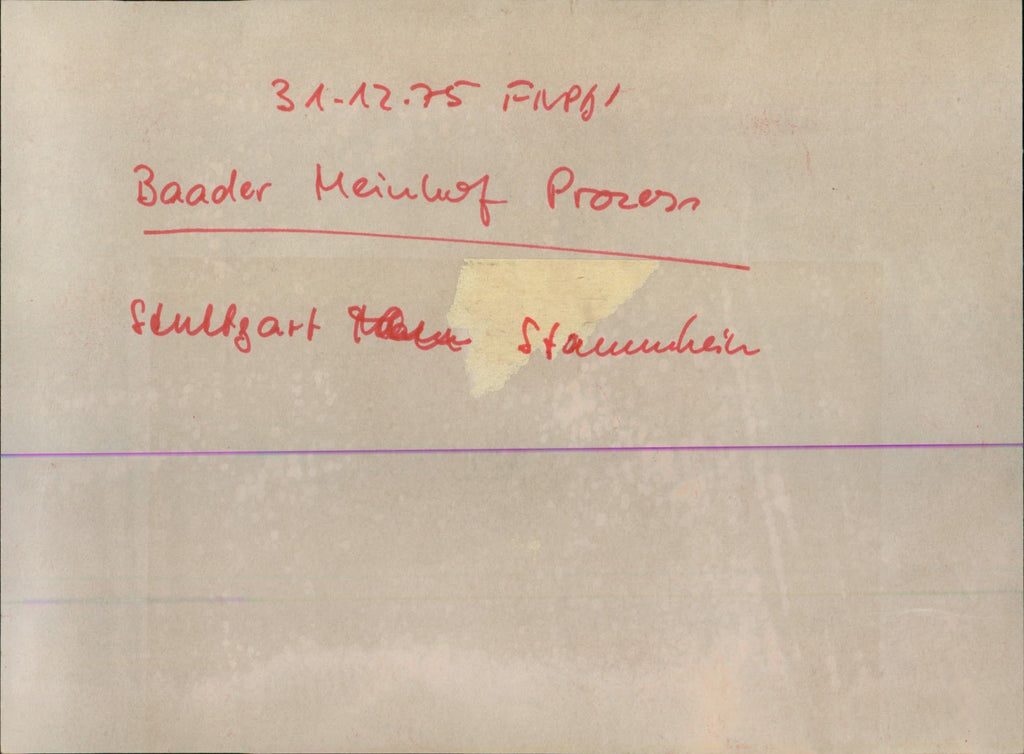 31.12.75
Baader Meinhof Prozess
Stuttgart Stammheim